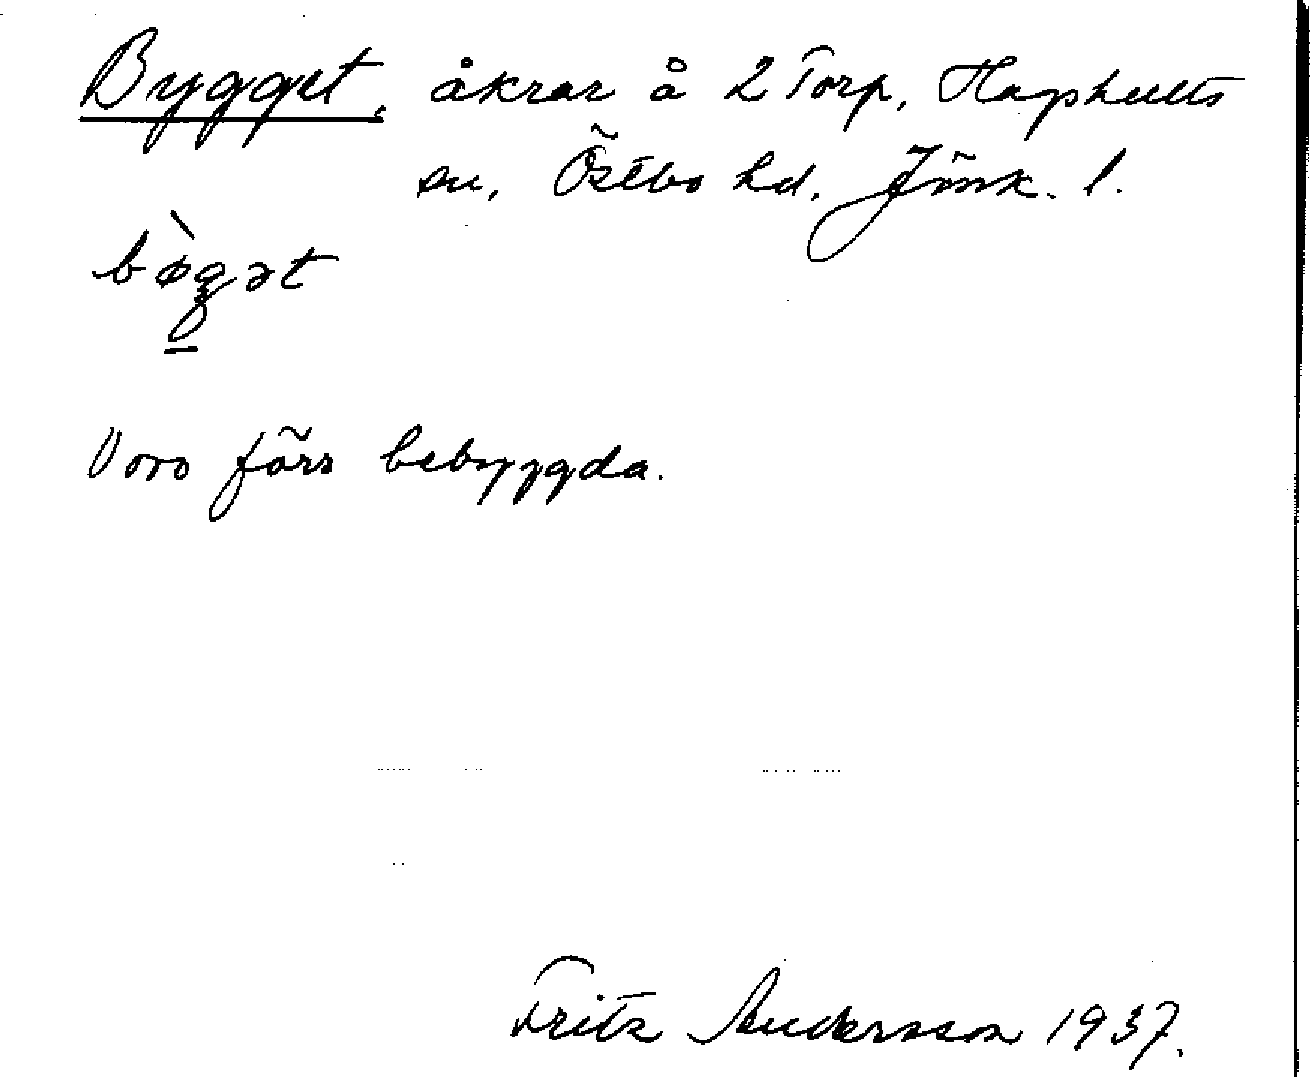 Bygget, åkrar å 2 Torp, Hagshults
sn, Östbo hd, Jönk. l.
bø̀gət
Voro förs bebyggda.
Fritz Andersson 1937.